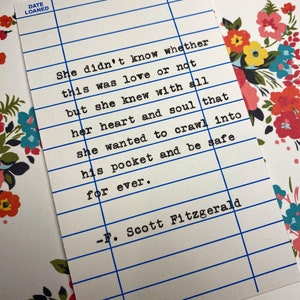 DATE
LOANED
She didn't know whether
this was love or not
but she knew with all
her heart and soul that
she wanted to crawl into
his pocket and be safe
for ever.
-F. Scott Fitzgerald